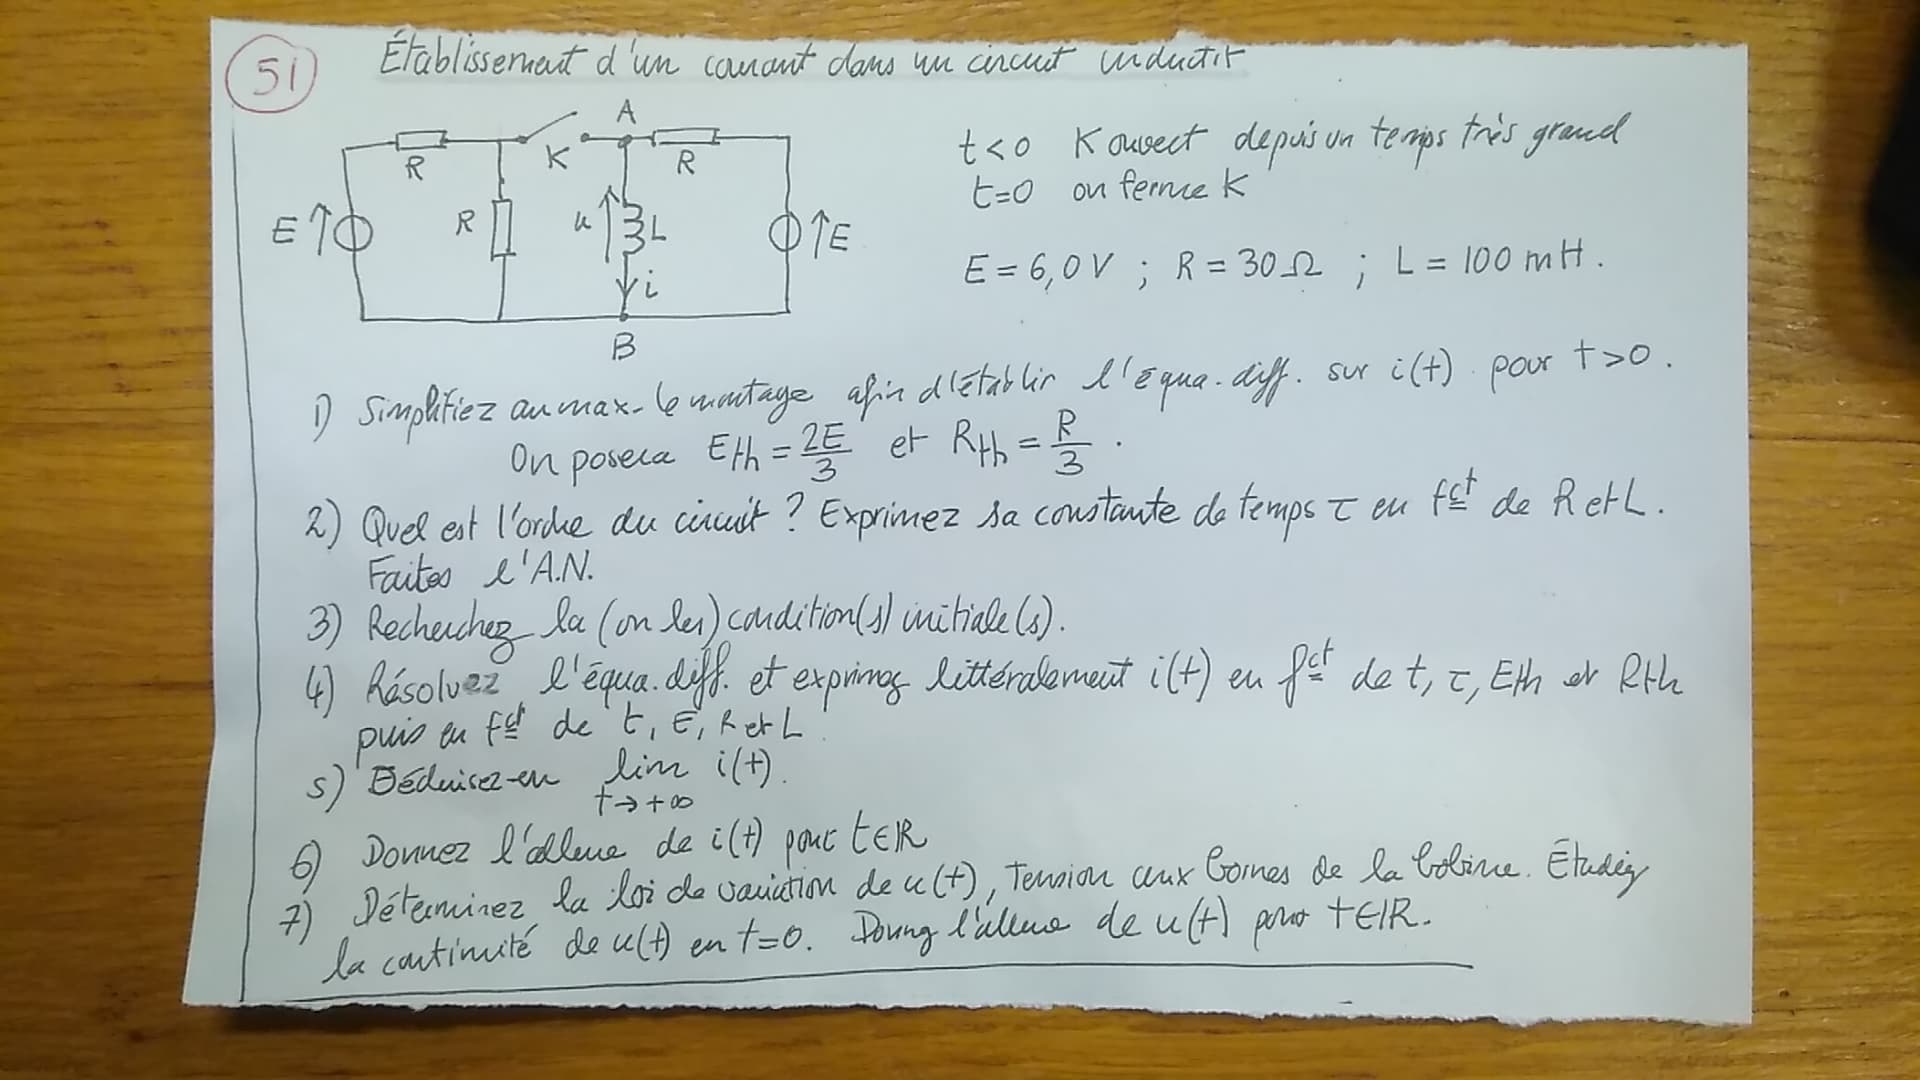 51
Établissement d'un courant dans un circuit inductif
A
R
K
R
E
R
u
L
E
i
B
t<0 K ouvert depuis un temps très grand
t=0 on ferme K
E = 6,0 V ; R = 30 Ω ; L = 100 mH.
1) Simplifiez au max. le montage afin d'établir l'équa. diff. sur i(t) pour t>0.
On posera Eth = 2E/3 et Rth = R/3.
2) Quel est l'ordre du circuit ? Exprimez sa constante de temps τ en fct de R et L.
Faites l'A.N.
3) Recherchez la (ou les) condition(s) initiale(s).
4) Résolvez l'équa. diff. et exprimez littéralement i(t) en fct de t, τ, Eth et Rth
puis en fct de t, E, R et L.
5) Déduisez-en lim i(t).
t→+∞
6) Donnez l'allure de i(t) pour t∈ℝ
7) Déterminez la loi de variation de u(t), tension aux bornes de la bobine. Étudiez
la continuité de u(t) en t=0. Donnez l'allure de u(t) pour t∈ℝ.